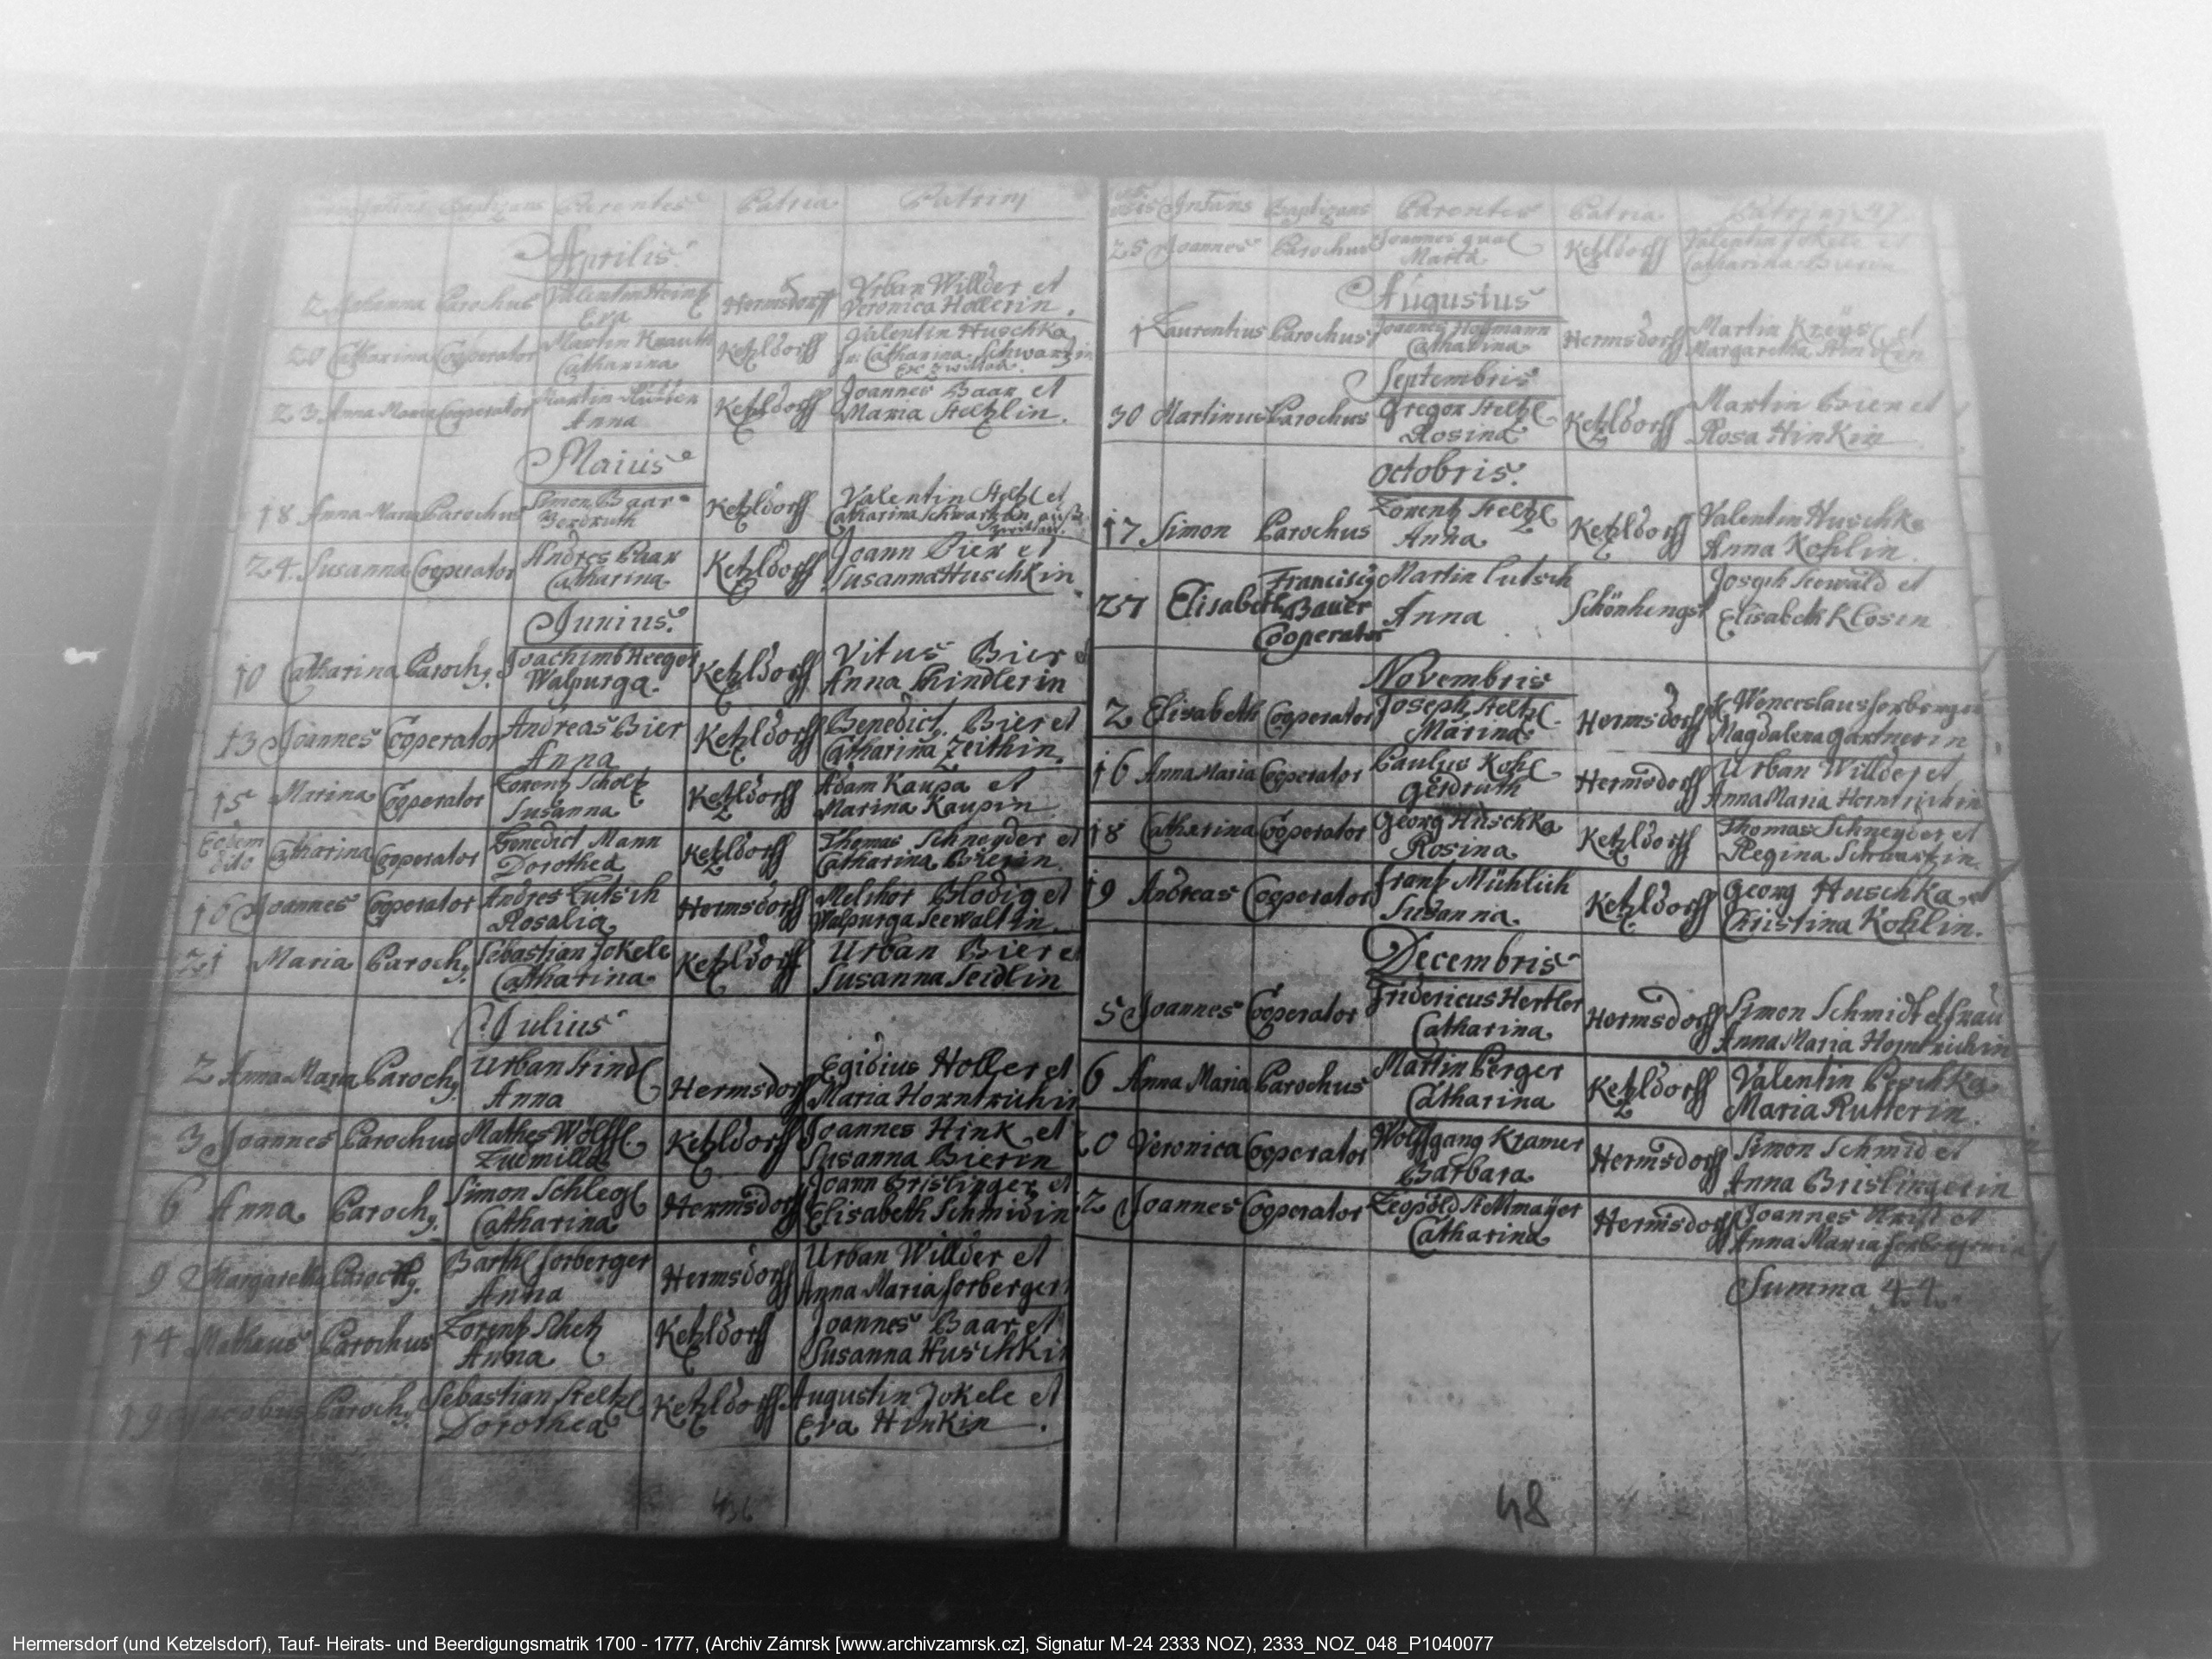 Infans Baptizans Parentes Patria Patrini
Aprilis
2 Johanna Parochus Valentin Heintz Eva Hermsdorff Urban Willder et
Veronica Hollerin.
20 Catharina Cooperator Martin Knauth Catharina Ketzldorff Valentin Huschka
Catharina Schwartzin
ex Zwittau.
23 Anna Maria Cooperator Martin
Anna Ketzldorff Joannes Baar et
Maria Steltzlin.
Maius
18 Anna Maria Parochus Simon Baar
Gerdruth Ketzldorff Valentin Steltzl et
Catharina Schwartzin
24. Susanna Cooperator Andres Baar
Catharina Ketzldorff Joann Bier et
Susanna Huschkin
Junius.
10 Catharina Paroch9. Joachimb Heeger
Walpurga. Ketzldorff Vitus Bier et
Anna Kindlerin
13 Joannes Cooperator Andreas Bier
Anna Ketzldorff Benedict9. Bier et
Catharina Zeithin.
15 Marina Cooperator Lorentz Scholtz
Susanna Ketzldorff Adam Kaupa et
Marina Kaupin
Eodem
dito Catharina Cooperator Benedict Mann
Dorothea Ketzldorff Thomas Schneyder et
Catharina Bierin.
16 Joannes Cooperator Andres Lutsch
Rosalia Hermsdorff Melchor Blodig et
Walpurga Seewaltin.
21 Maria Paroch9. Sebastian Jokele
Catharina Ketzldorff Urban Bier et
Susanna Seidlin
Julius
2 Anna Maria Paroch9. Urban Kindl
Anna Hermsdorff Egidius Holler et
Maria Horntrichin
3 Joannes Parochus Mathes Wölffl
Ludmilla Ketzldorff Joannes Hink et
Susanna Bierin
6 Anna Paroch9. Simon Schlegl
Catharina Hermsdorff Joann Brislinger et
Elisabeth Schmidin
9 Margaretha Paroch9. Barthl Forberger
Anna Hermsdorff Urban Willder et
Anna Maria Forbergerin
14 Mathaus Parochus Lorentz Schetz
Anna Ketzldorff Joannes Baar et
Susanna Huschkin
19 Jacobus Paroch9. Sebastian Steltzl
Dorothea Ketzldorff Augustin Jokele et
Eva Hinkin.
436
Infans Baptizans Parentes Patria Patrini 47
25 Joannes Parochus Joannes
Marta Ketzldorff Valentin Jokele et
Catharina Bierin
Augustus
1 Laurentius Parochus Joannes Hoffmann
Catharina Hermsdorff Martin et
Margaretha
Septembris
30 Martinus Parochus Gregor Steltzl
Rosina Ketzldorff Martin Bier et
Rosa Hinkin
Octobris.
17 Simon Parochus Lorentz Steltzl
Anna Ketzldorff Valentin Huschka
Anna Kohlin.
27 Elisabeth Franciscq
Bauer
Cooperator Martin Lutsch
Anna Schönhengst Joseph Seewald et
Elisabeth Klosin
Novembris
2 Elisabeth Cooperator Joseph Steltzl.
Marina Hermsdorff Wenceslaus Forberger
Magdalena Gartnerin
16 Anna Maria Cooperator Paulus Kohl
Gerdruth Hermsdorff Urban Willder et
Anna Maria Horntrichin
18 Catharina Cooperator Georg Huschka
Rosina Ketzldorff Thomas Schneyder et
Regina Schwartzin
19 Andreas Cooperator Frantz Mühlich
Susanna. Ketzldorff Georg Huschka et
Christina Kohlin.
Decembris
5 Joannes Cooperator Fridericus Hertler
Catharina Hermsdorff Simon Schmidt et frau
Anna Maria Horntrichin
6 Anna Maria Parochus Martin Berger
Catharina Ketzldorff Valentin Peschka
Maria Rutterin.
20 Veronica Cooperator Wolffgang Kramer
Barbara Hermsdorff Simon Schmid et
Anna Brislingerin
Joannes Cooperator Leopold Stettmayer
Catharina Hermsdorff Joannes et
Anna Maria Forbergerin
Summa 44.
48
Hermersdorf (und Ketzelsdorf), Tauf- Heirats- und Beerdigungsmatrik 1700 - 1777, (Archiv Zámrsk [www.archivzamrsk.cz], Signatur M-24 2333 NOZ), 2333_NOZ_048_P1040077